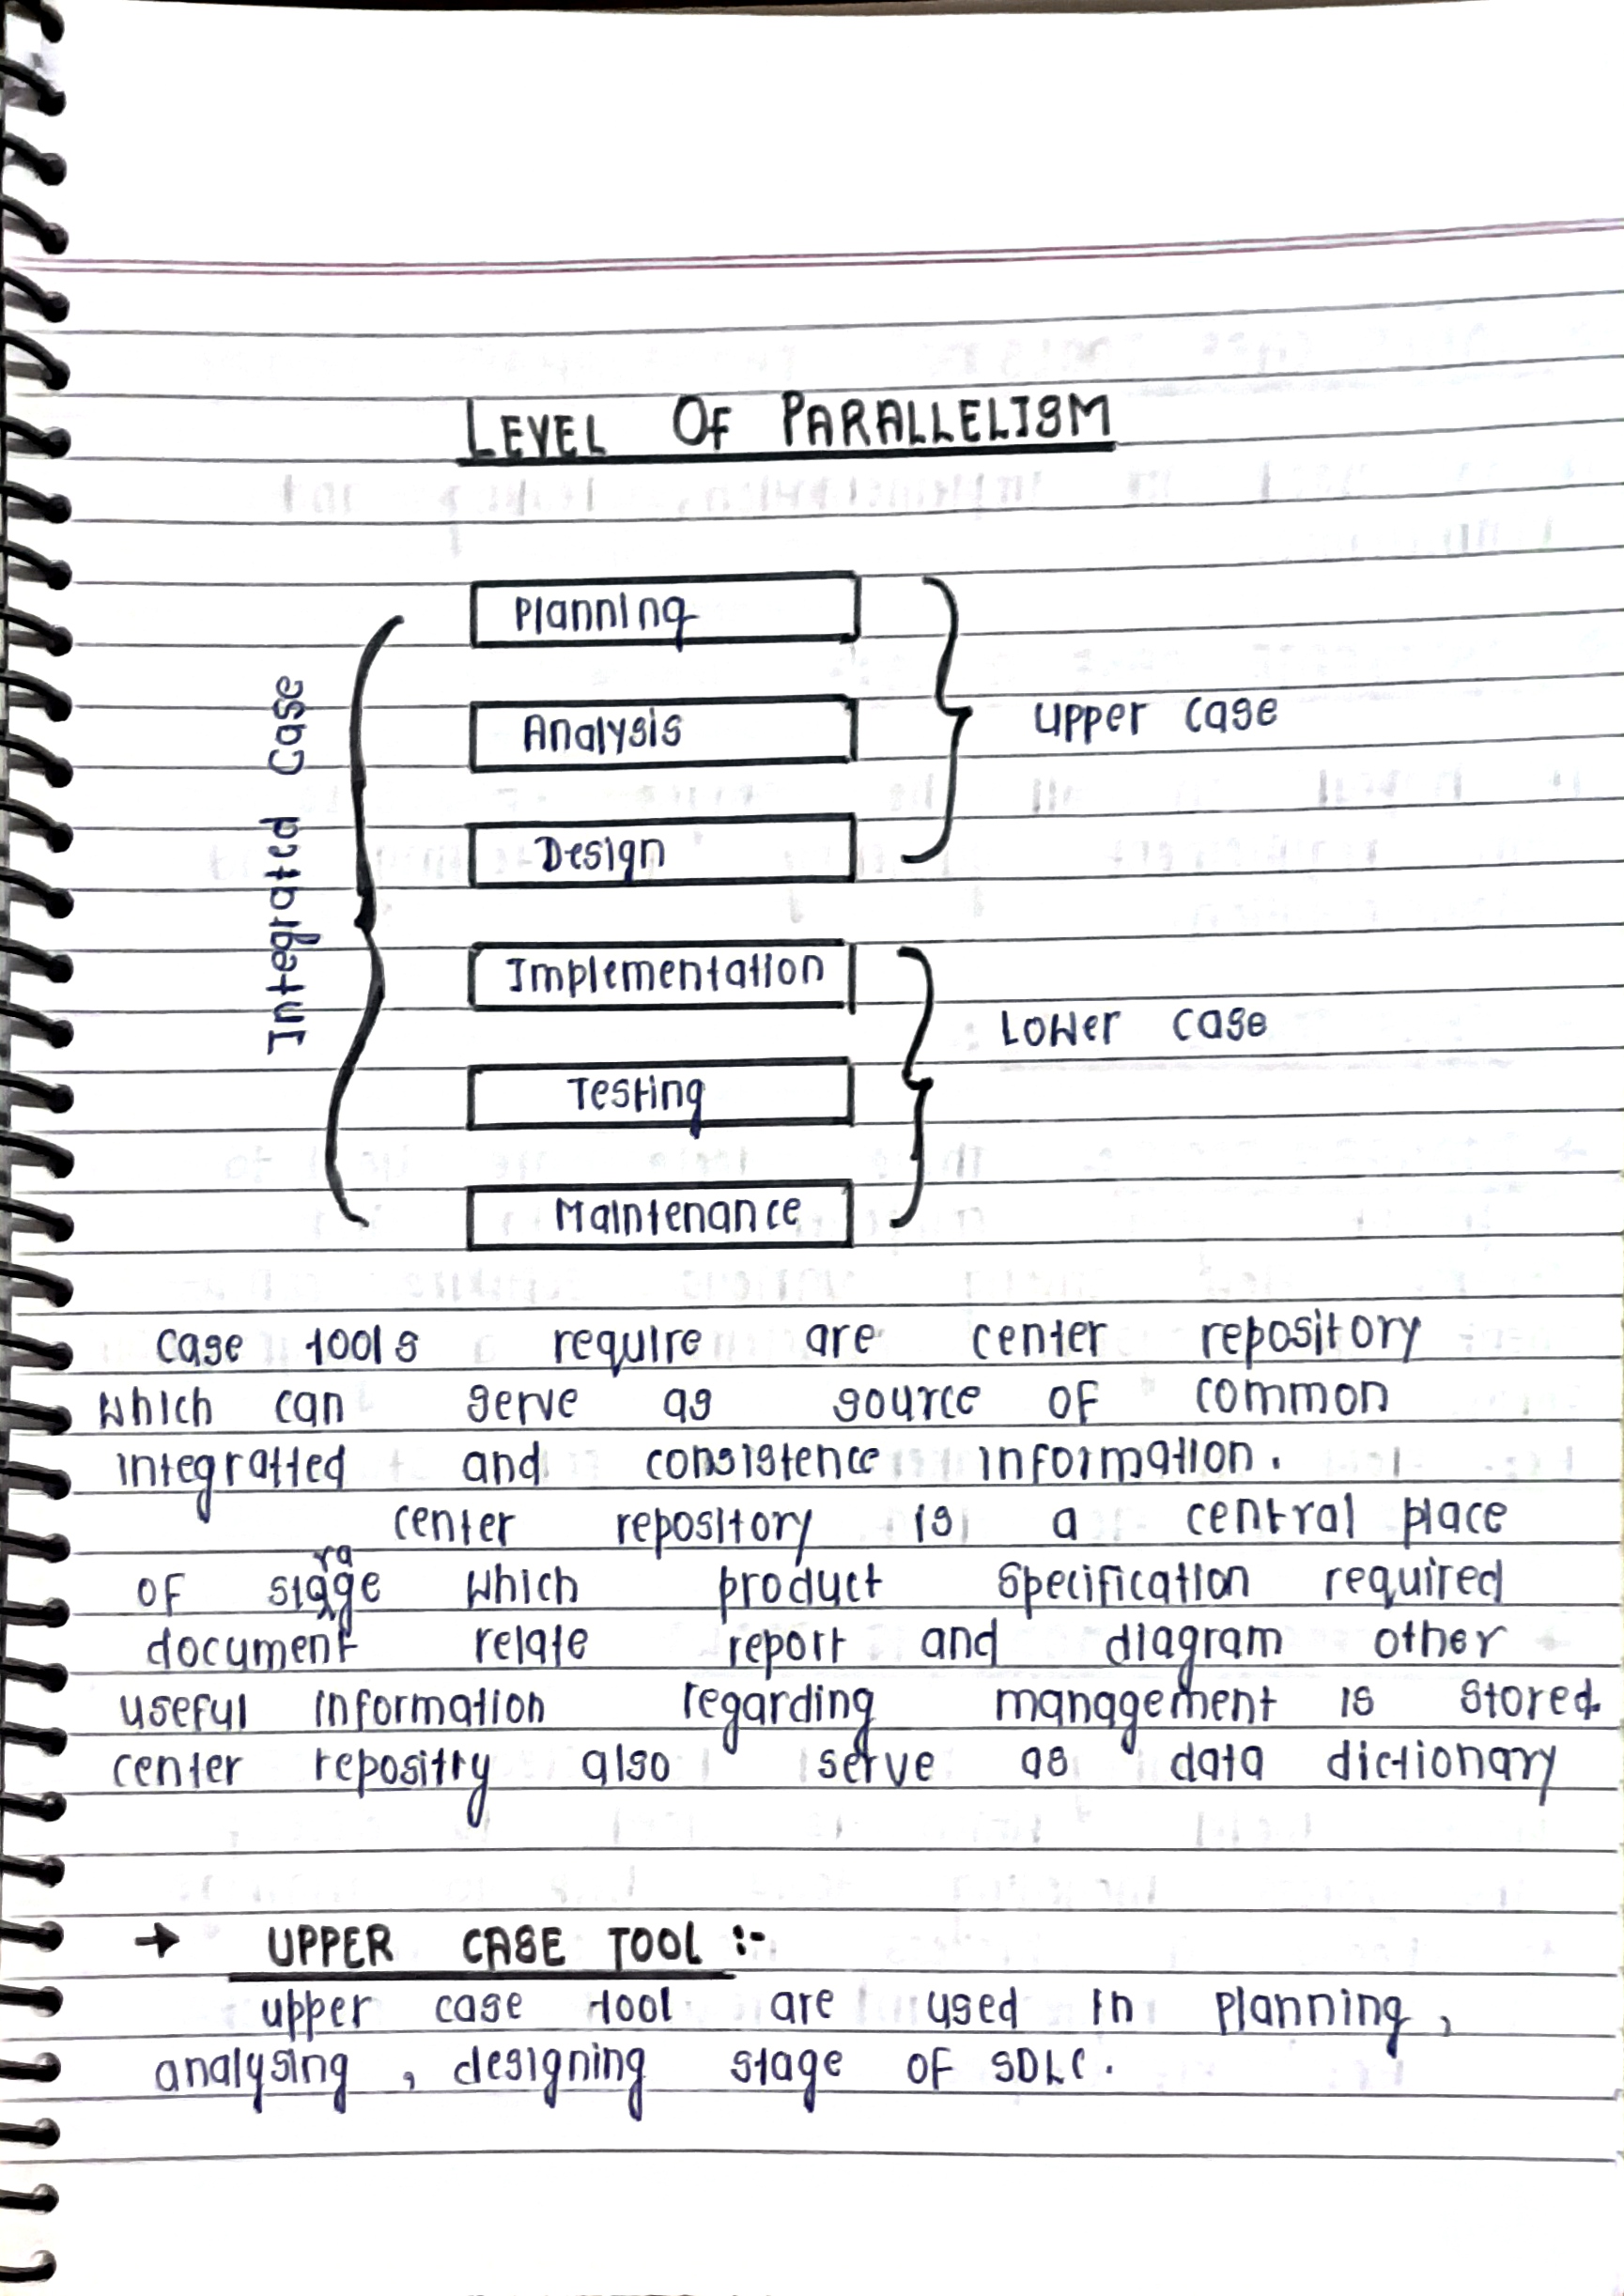 LEVEL OF PARALLELISM
Planning
Analysis
Design
Implementation
Testing
Maintenance
Integrated Case
upper case
Lower case
case tools require are center repository
which can serve as source of common
integratted and consistence information.
center repository is a central place
of storage which product specification required
document relate report and diagram other
useful information regarding management is stored.
center repositry also serve as data dictionary
→ UPPER CASE TOOL :-
upper case tool are used in planning,
analysing, designing stage of SDLC.